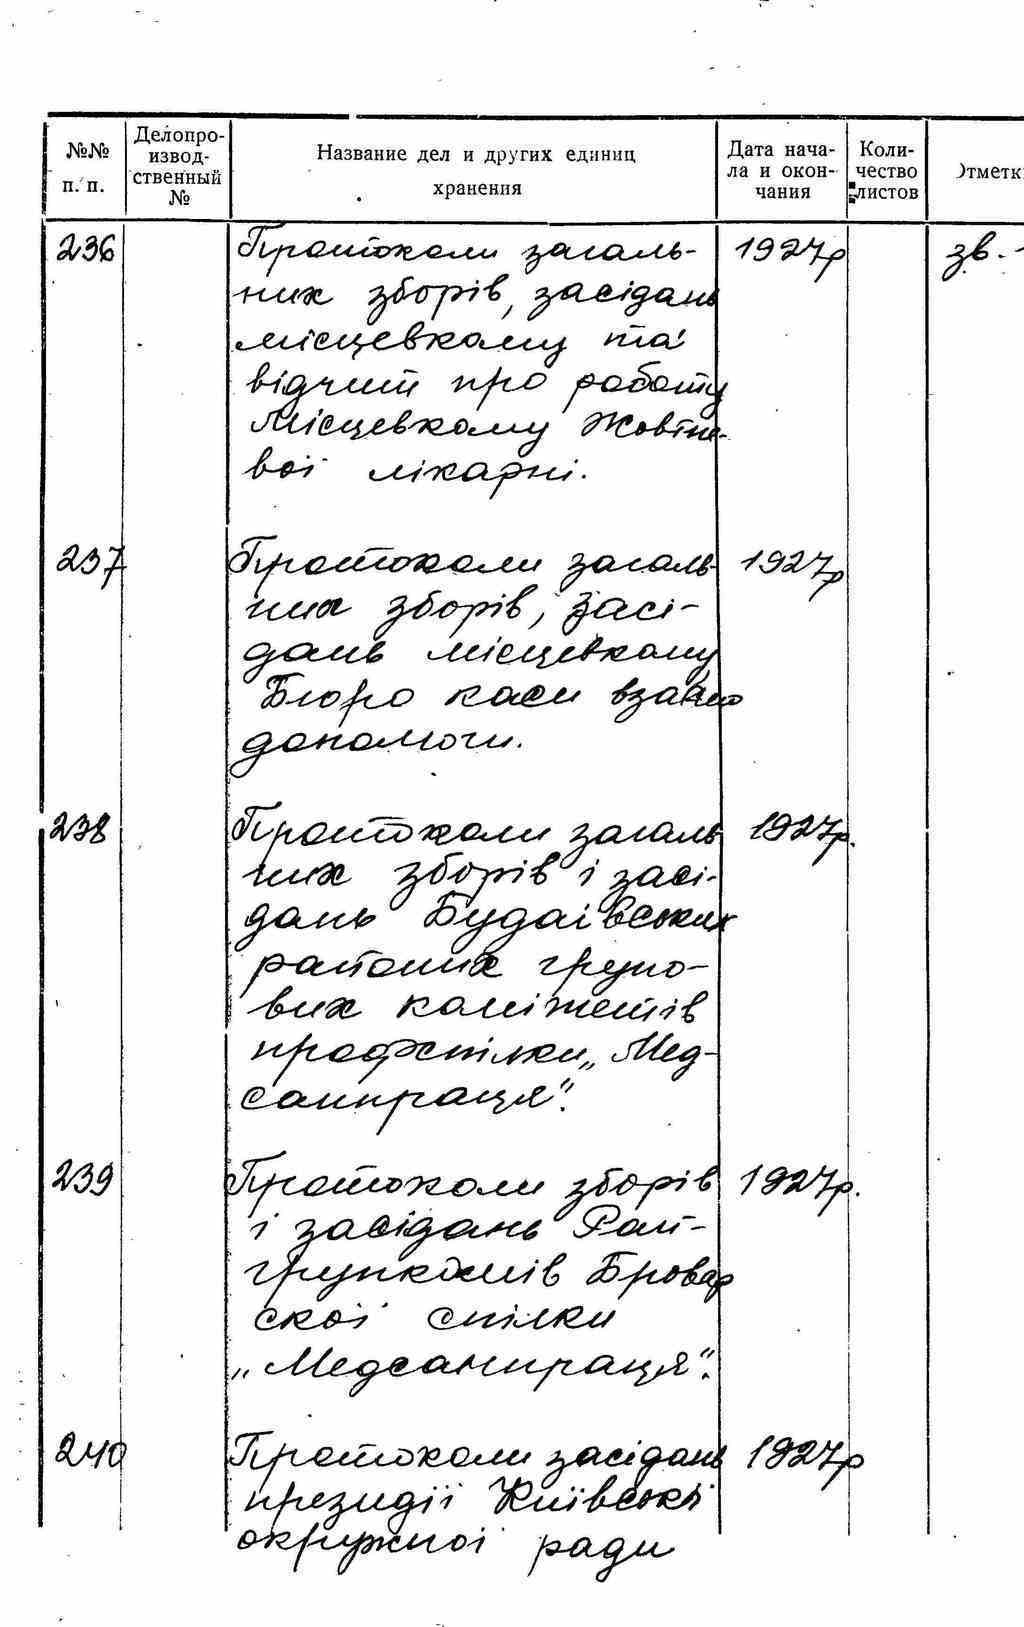 №№ п. п.
Делопро-
извод-
ственный
№
Название дел и других единиц
хранения
Дата нача-
ла и окон-
чания
Коли-
чество
листов
Отметк
236 Протоколи загаль- 1927р зв.
них зборів, засідань
місцевкому та
відчит про работу
Місцевкому Жовтне-
вої лікарні.
237 Протоколи загаль- 1927р
них зборів, засі-
дань місцевкому
Бюро каси взаємо
допомоги.
238 Протоколи загаль 1927р.
них зборів і засі-
дань Будаівських
районих групо-
вих комітетів
профспілки „Мед-
санпраця".
239 Протоколи зборів 1927р.
і засідань Рай-
групкомів Бровар
скої спілки
„Медсанпраця".
240 Протоколи засідань 1927р
президії Київської
окружної ради